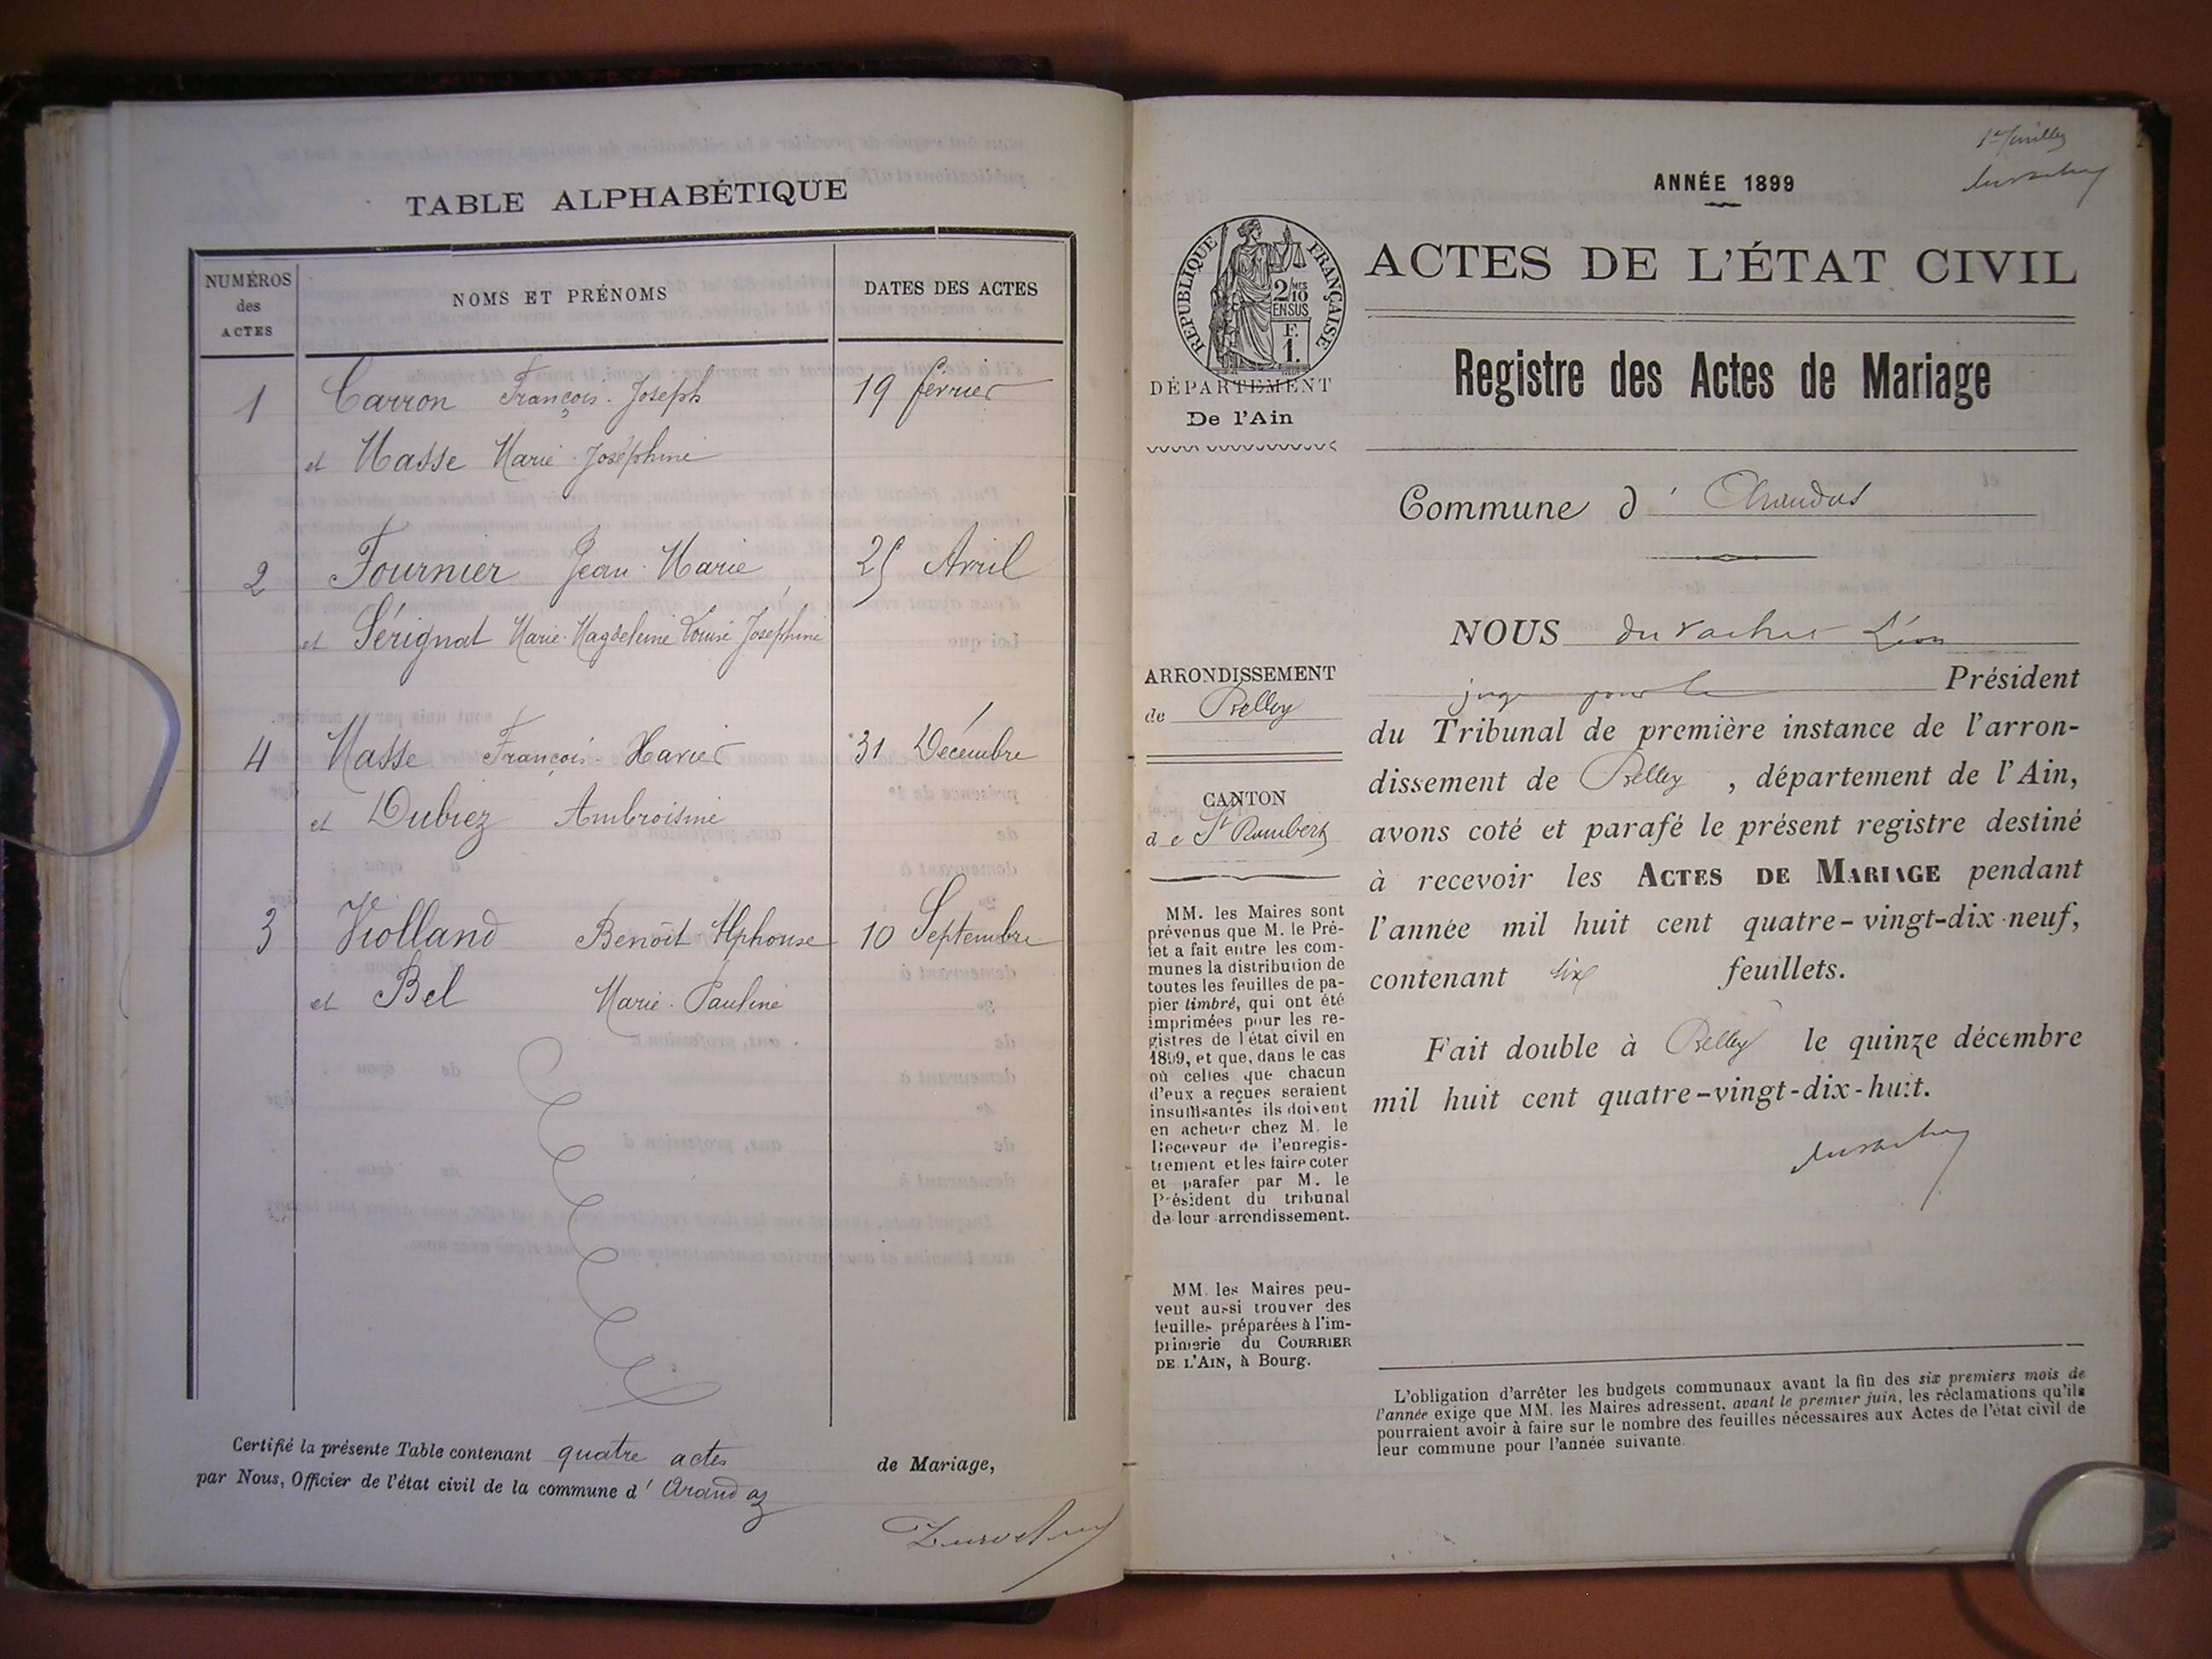 TABLE ALPHABÉTIQUE
NUMÉROS des ACTES
NOMS ET PRÉNOMS
DATES DES ACTES
1 Carron François-Joseph 19 février
et Masse Marie-Joséphine
2 Fournier Jean-Marie 25 Avril
et Sérignat Marie-Magdeleine Louise Joséphine
4 Masse François-Xavier 31 Décembre
et Dubiez Ambroisine
3 Violland Benoît Alphonse 10 Septembre
et Bel Marie-Pauline
Certifié la présente Table contenant quatre actes de Mariage,
par Nous, Officier de l'état civil de la commune d' Arandaz
1er feuillet
ANNÉE 1899
RÉPUBLIQUE FRANÇAISE
2/10 MES
EN SUS
F.
1.
DÉPARTEMENT
De l'Ain
ACTES DE L'ÉTAT CIVIL
Registre des Actes de Mariage
Commune d' Arandas
ARRONDISSEMENT
de Belley
CANTON
de St Rambert
MM. les Maires sont
prévenus que M. le Pré-
fet a fait entre les com-
munes la distribution de
toutes les feuilles de pa-
pier timbré, qui ont été
imprimées pour les re-
gistres de l'état civil en
1899, et que, dans le cas
où celles que chacun
d'eux a reçues seraient
insuffisantes ils doivent
en acheter chez M. le
Receveur de l'enregis-
trement et les faire coter
et parafer par M. le
Président du tribunal
de leur arrondissement.
MM. les Maires peu-
vent aussi trouver des
feuilles préparées à l'im-
primerie du COURRIER
DE L'AIN, à Bourg.
NOUS Léon
juge pour le Président
du Tribunal de première instance de l'arron-
dissement de Belley, département de l'Ain,
avons coté et parafé le présent registre destiné
à recevoir les ACTES DE MARIAGE pendant
l'année mil huit cent quatre-vingt-dix-neuf,
contenant six feuillets.
Fait double à Belley le quinze décembre
mil huit cent quatre-vingt-dix-huit.
L'obligation d'arrêter les budgets communaux avant la fin des six premiers mois de
l'année exige que MM. les Maires adressent, avant le premier juin, les réclamations qu'ils
pourraient avoir à faire sur le nombre des feuilles nécessaires aux Actes de l'état civil de
leur commune pour l'année suivante.